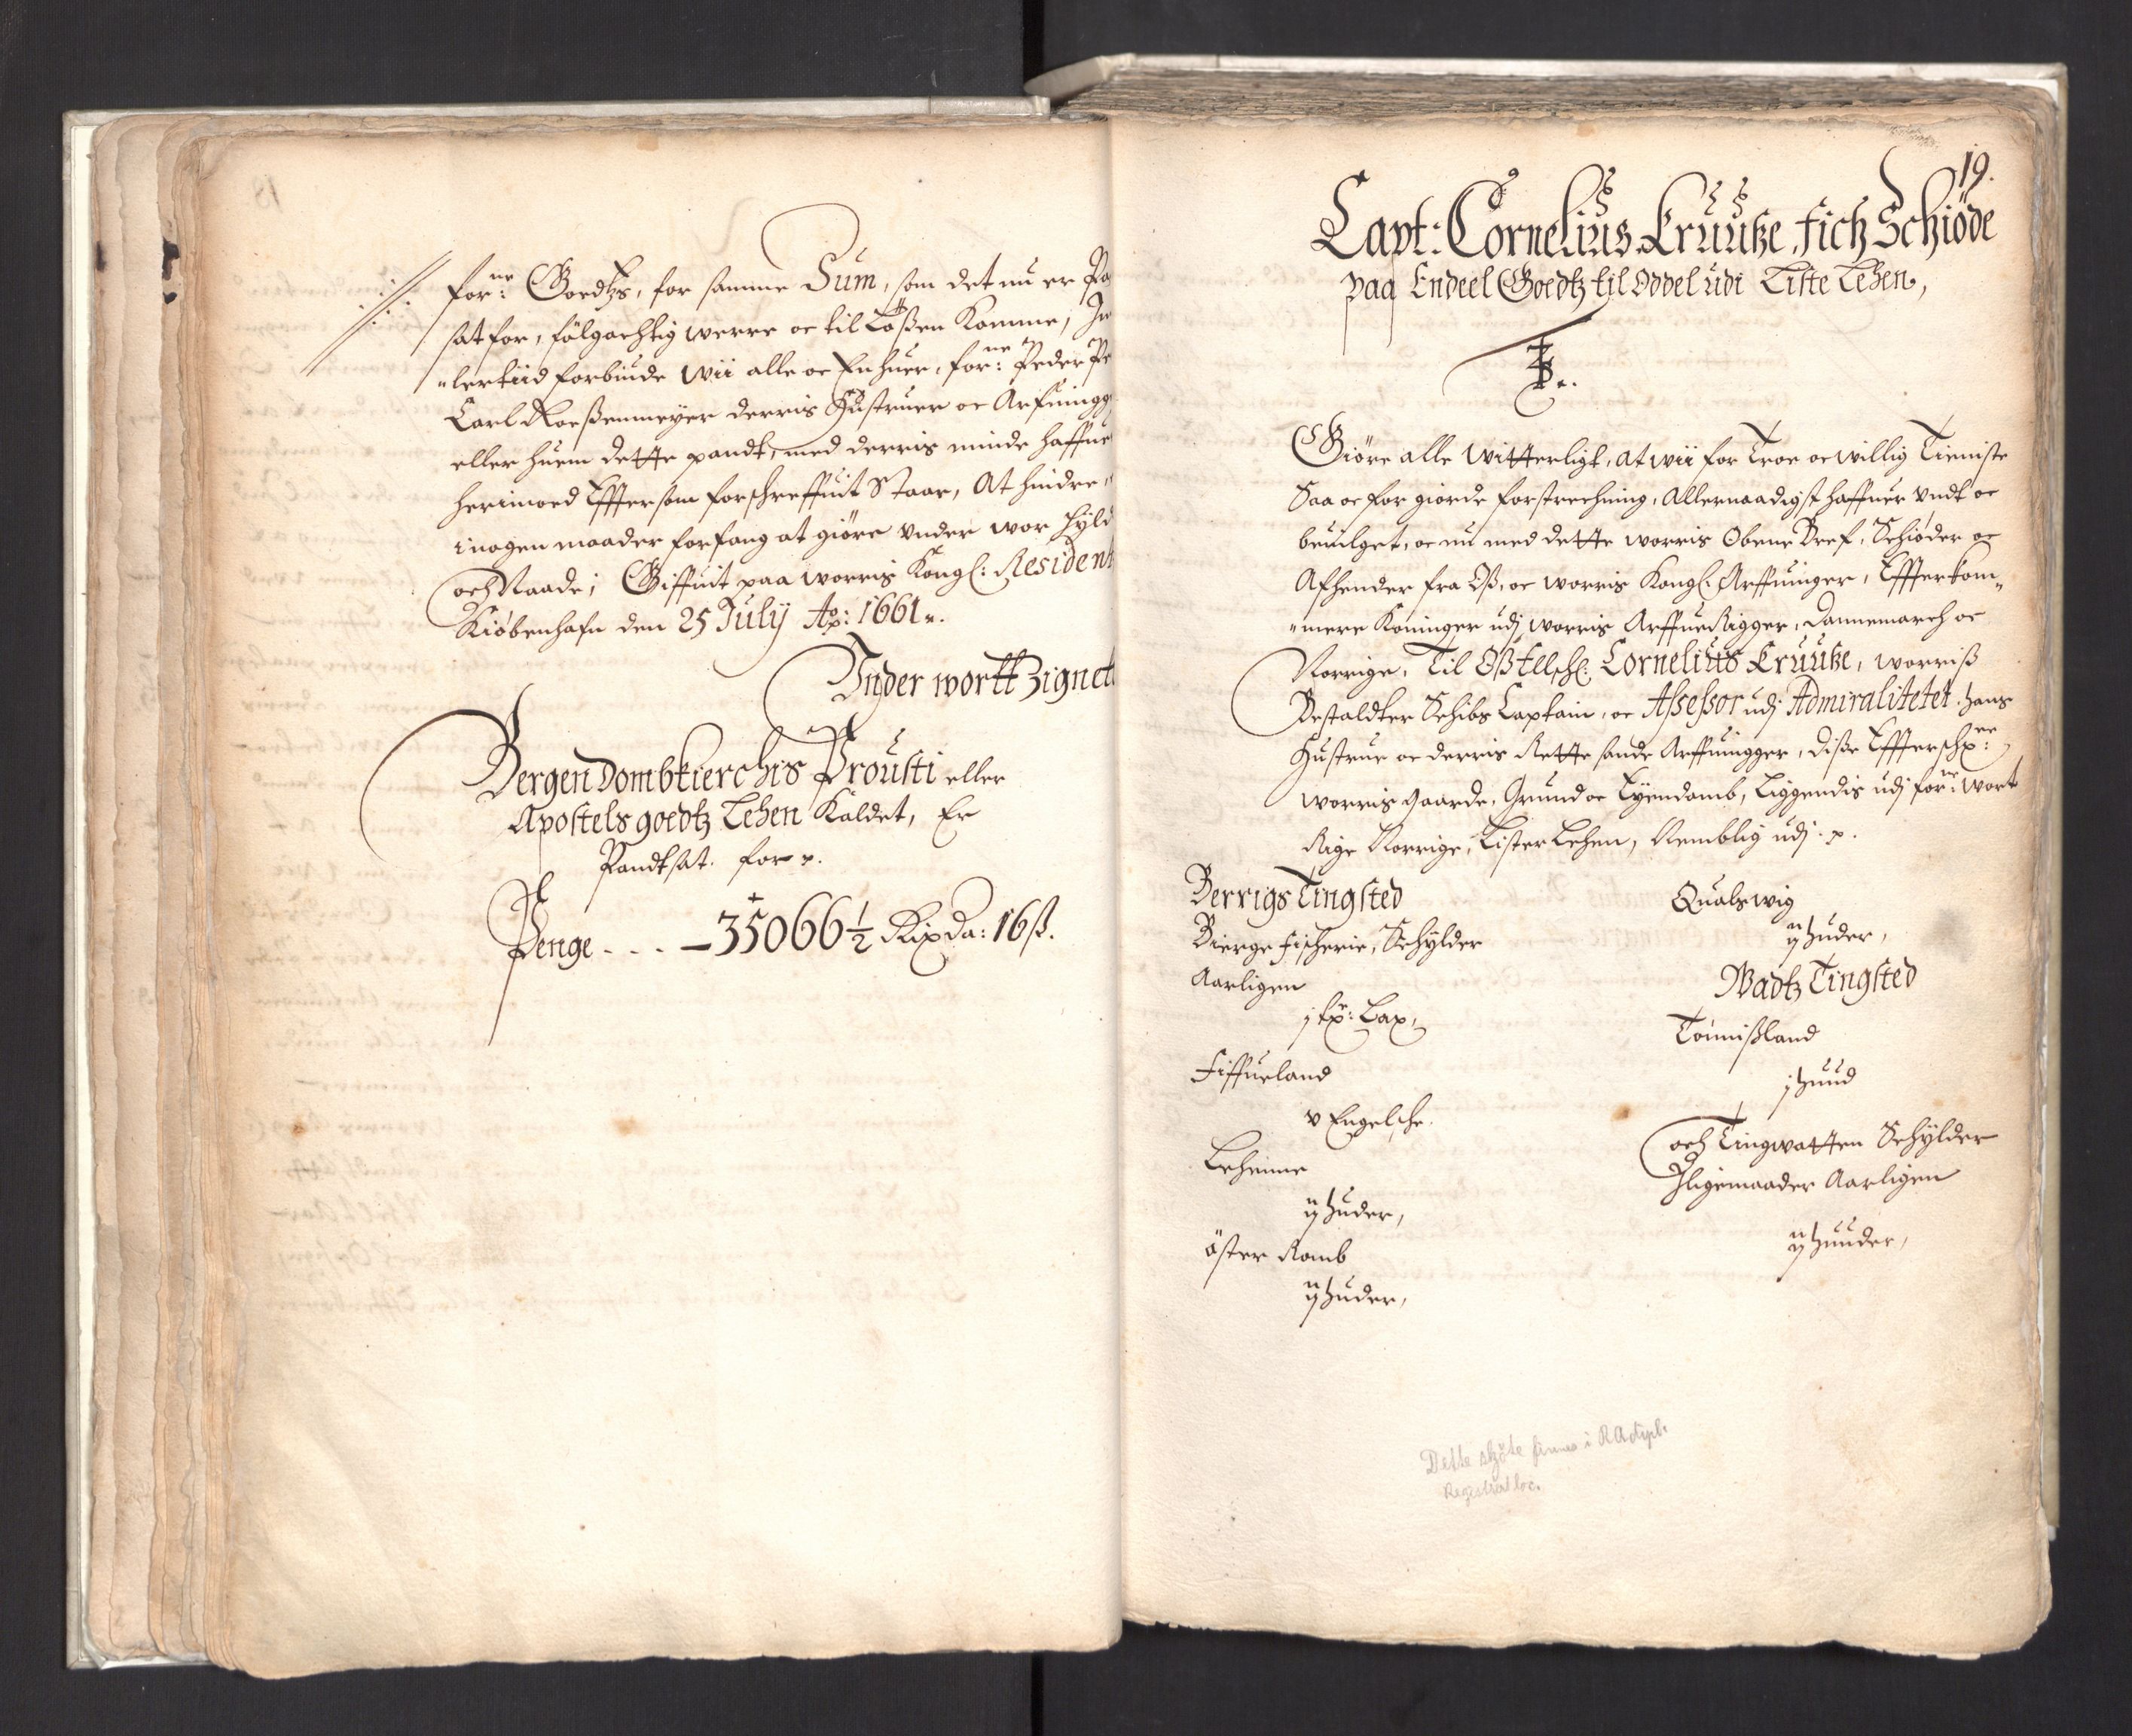 for:ne Goedtzs, for samme Sum, som det nu er
sat for, fölgachtig werre oc til Löβen Komme,
"lertiid forbiude Wii alle oc En huer, for:ne Peder
Carl Roeβenmeyer derris Hustruer oc Arfuingg
eller huem dette pandt, med derris minde haffue
herimoed Effter som forschreffuit Staar, At hindre
i nogen maader forfang at giöre Under wor Hyld
och Naade; Giffuit paa worris Kongl: Resident
Kiöbenhafn den 25 Julÿ Ao: 1661.
Under wortt Zignet
Bergen Dombkierchis Prousti eller
Apostels goedtz Lehen Kaldet, Er
Pandtsat. for
Penge - - - - 35066½ Rixda: 16 β.
19.
Capt: Cornelius Kruutze, fich Schiöde
paa Endeel Goedtz til Oddel udi Liste Lehen,
Giöre alle Witterligt, at wii for Troe oc willig Tieniste
Saa oc for giorde forstrechning, Allernaadigst haffuer Undt oc
beuilget, oc nu med dette worris Obene Bref, Schiöder oc
Afhender fra Oβ, oc worris Kongl. Arffuinger, Effterkom„
"mere Koninger udj worris Arffue Rigger, Dannemarch oc
Norrige, Til Oβ Elschl: Cornelius Kruutze, worriβ
Bestaldter Schibs Captain, oc Assessor udj Admiralitetet, hans
Hustrue oc derris Rette sande Arffuingger, diβe Effterschr:ne
worris gaarde, Grund oc Eÿendomb, Liggendis udj for:ne wort
Rige Norrige, Lister Lehen, Nemblig udj.
Berrigs Tingsted
Bierge fischerie, Schÿlder
Aarligen
j tp: Lax,
Fiffueland
v Engelsche.
Leheinne
ij Huder,
öster Ramb
ij Huder,
Qualswig
ij Huder,
Wadtz Tingsted
Tömiβland
j Huud
och Tingwatten Schÿlder
Jligemaader Aarligen
ij Huuder,
Dette skjöte finnes i RAdipl.